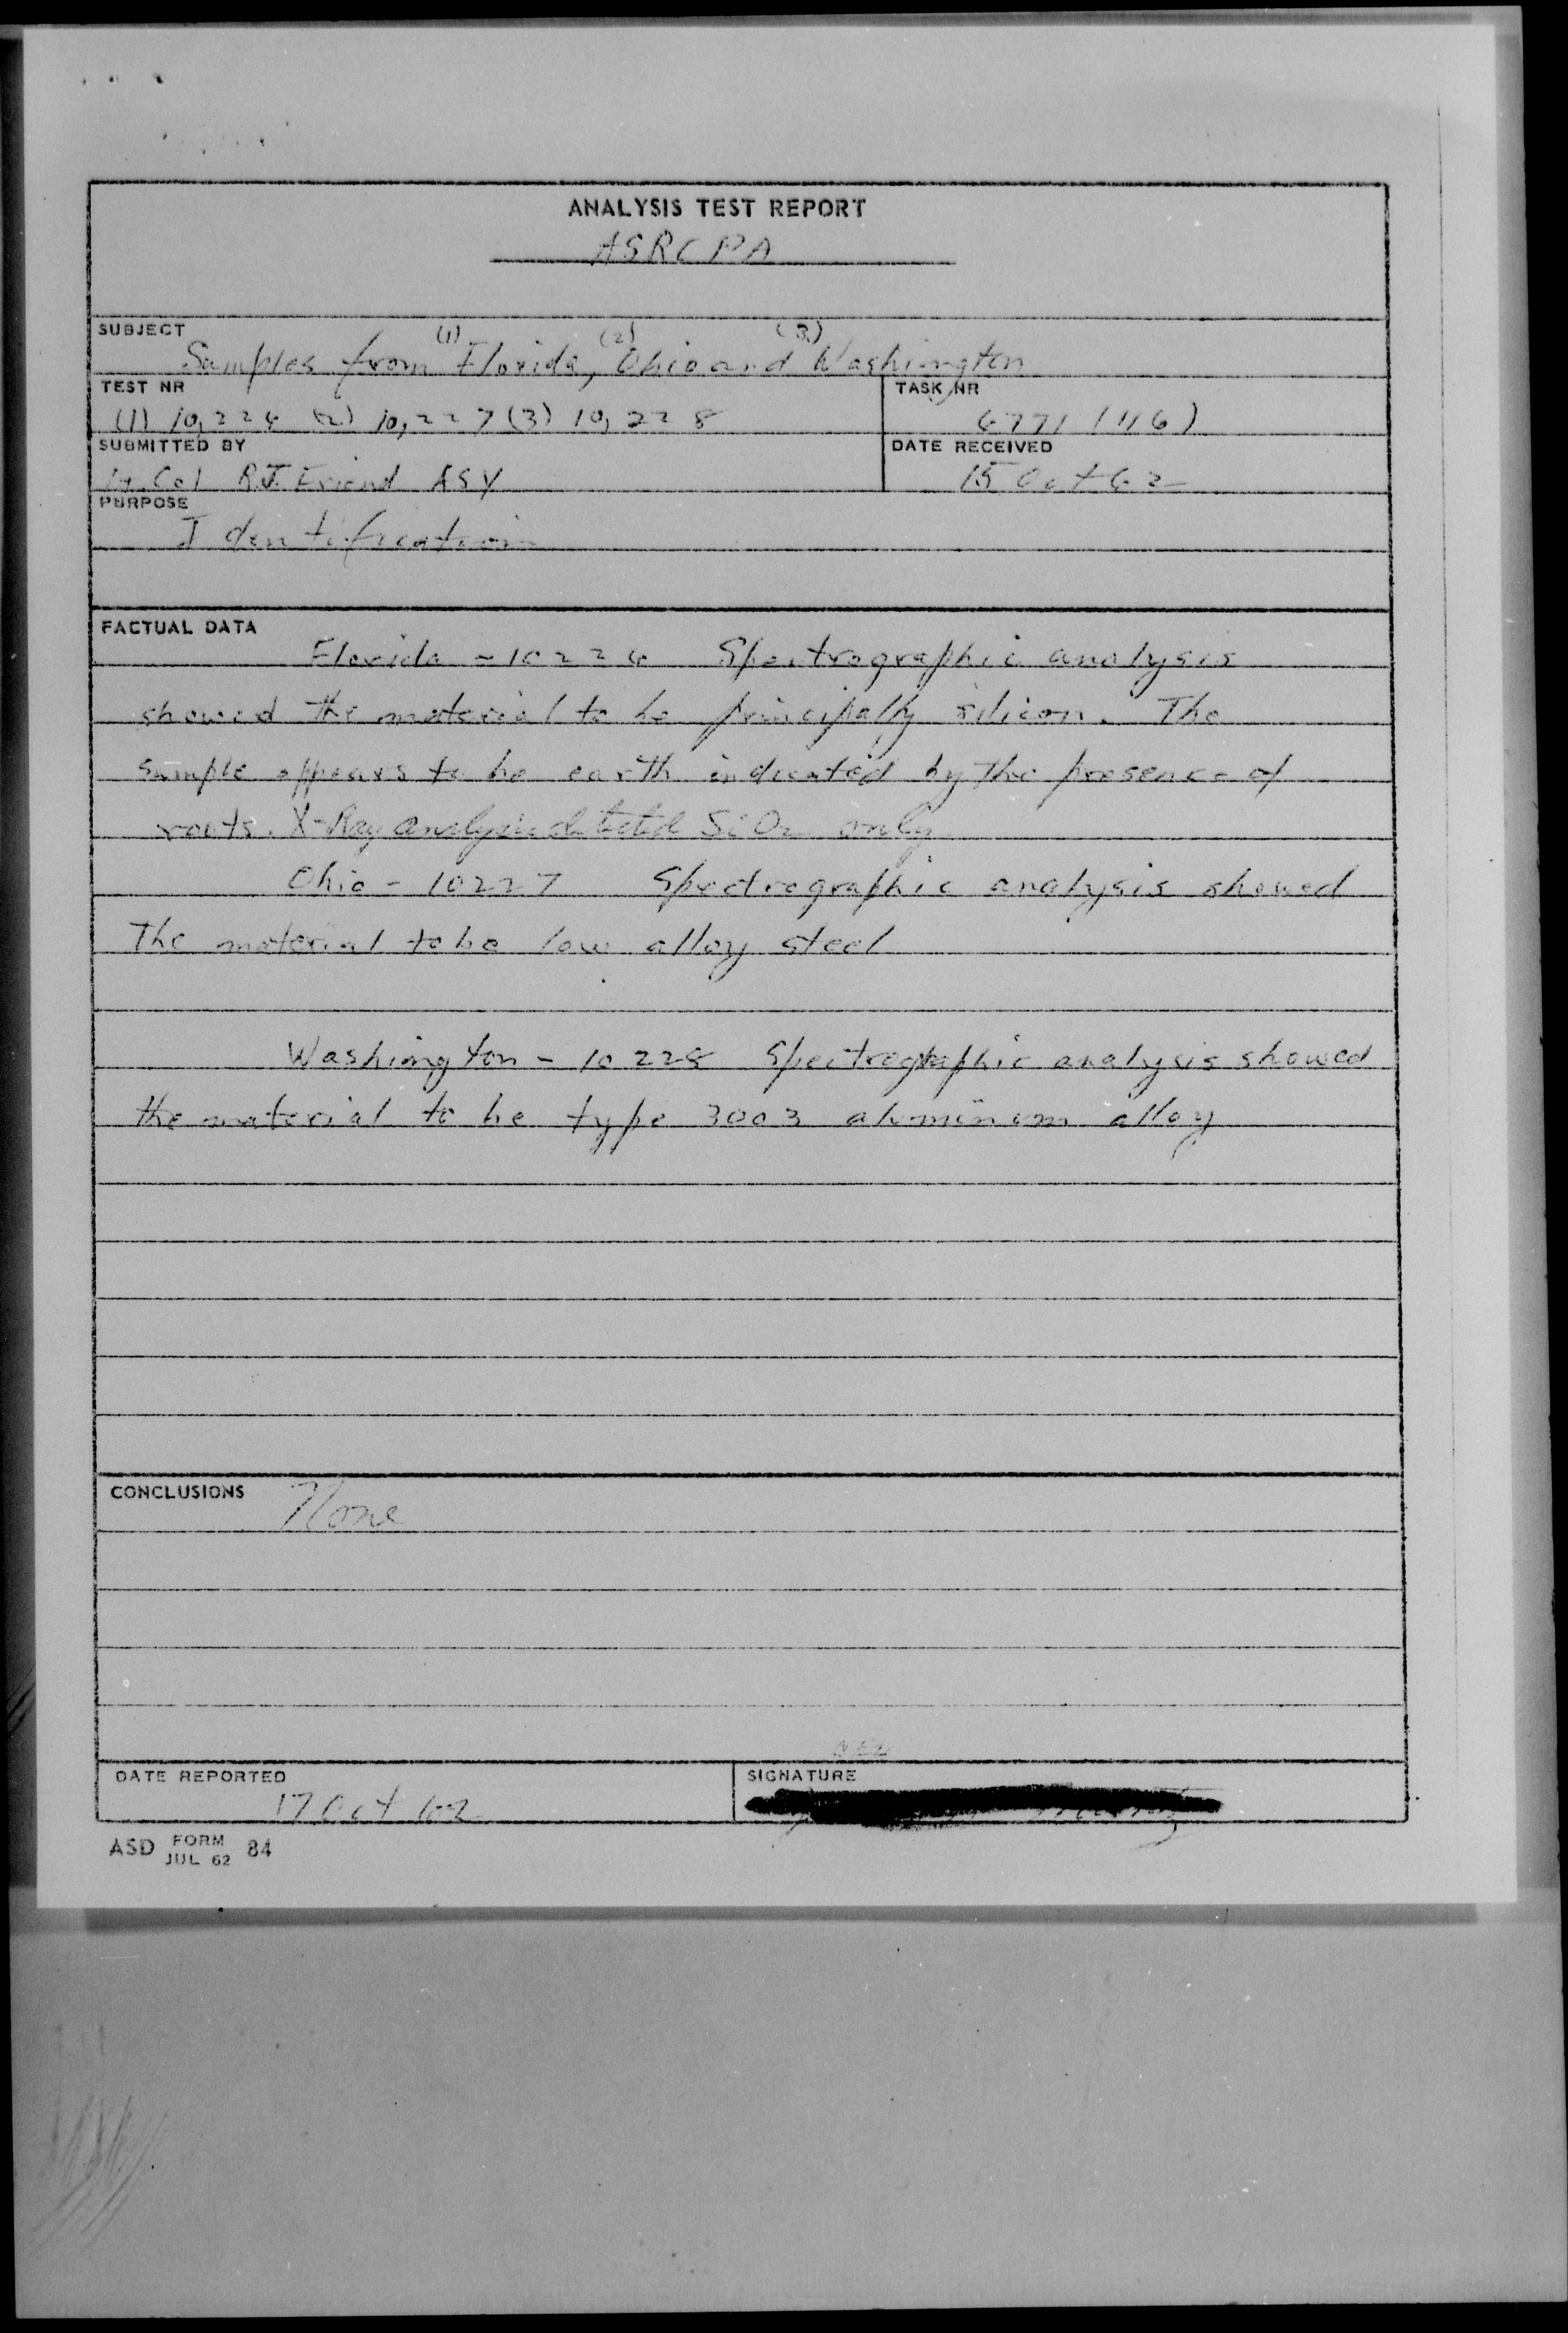 ANALYSIS TEST REPORT
ASRCPA
SUBJECT
(1) (2) (3)
Samples from Florida, Ohio and Washington
TEST NR
TASK NR
(1) 10,226 (2) 10,227 (3) 10,228
6771 (116)
SUBMITTED BY
DATE RECEIVED
Lt. Col R.J. Friend ASY
15 Oct 62
PURPOSE
Identification
FACTUAL DATA
Florida - 10226 Spectrographic analysis
showed the material to be principally silicon. The
sample appears to be earth indicated by the presence of
roots. X-Ray analysis detected SiO2 only
Ohio - 10227 Spectrographic analysis showed
The material to be low alloy steel
Washington - 10228 Spectrographic analysis showed
the material to be type 3003 aluminum alloy
CONCLUSIONS
None
DATE REPORTED
SIGNATURE
17 Oct 62
ASD FORM 84
JUL 62